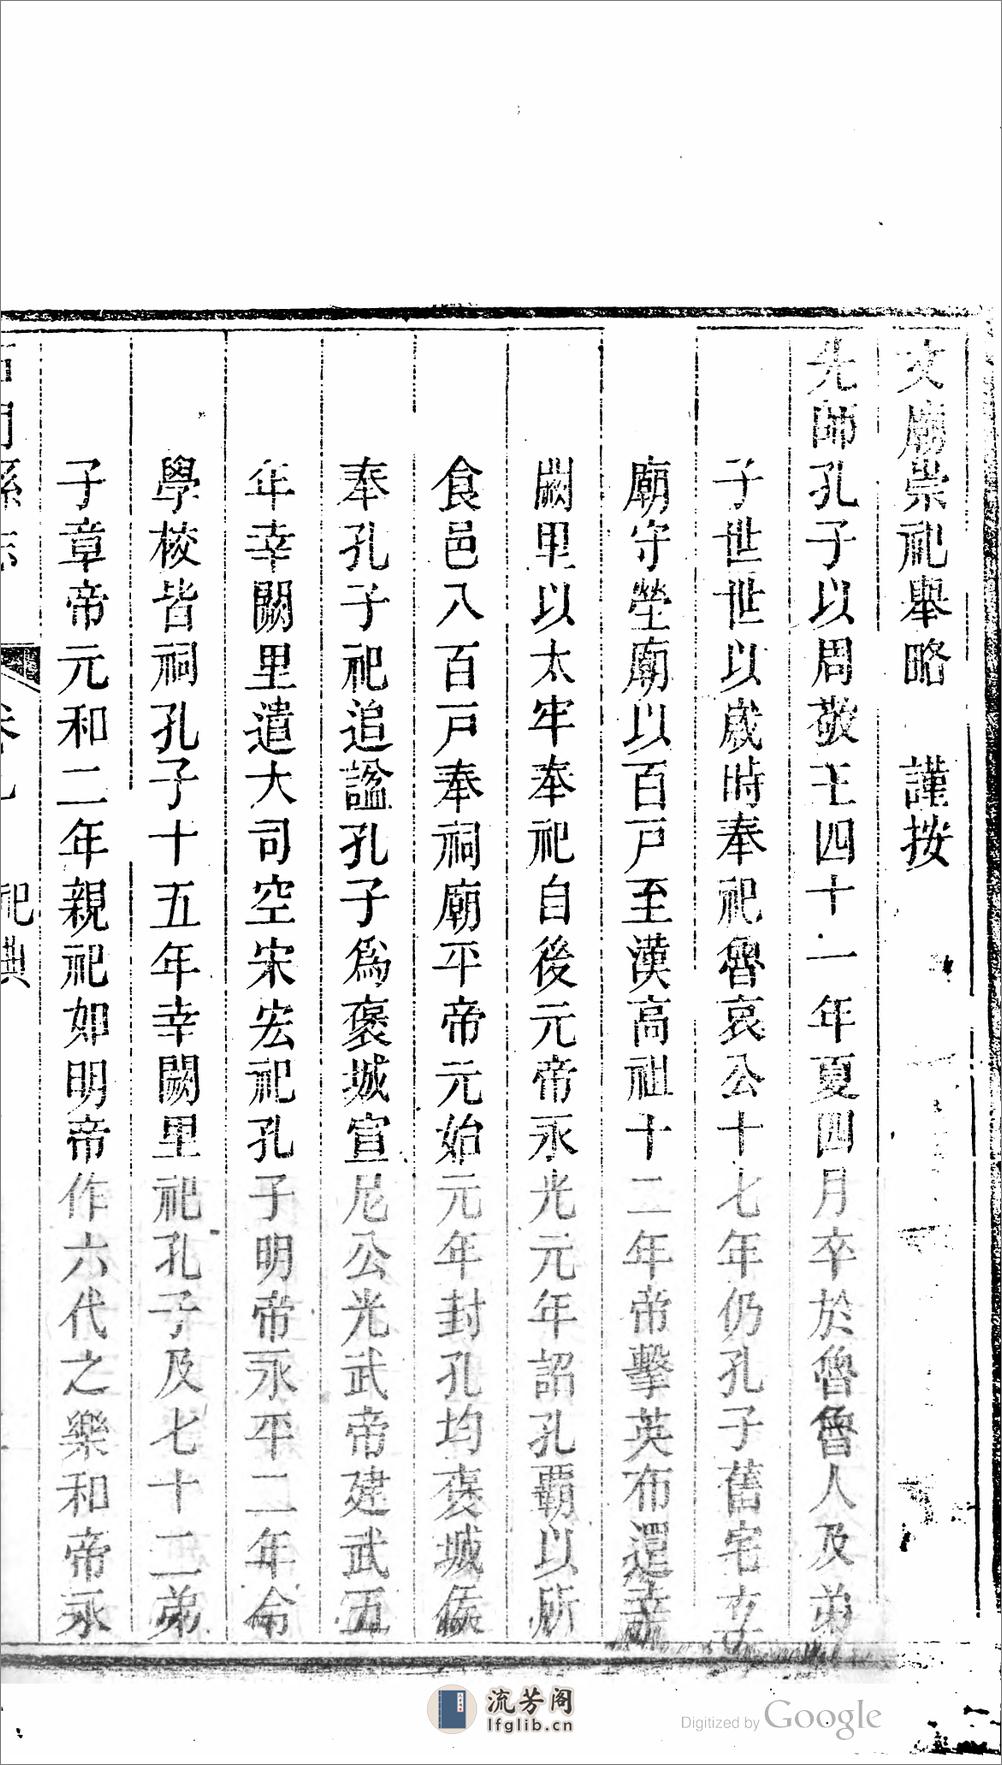 文廟崇祀舉略　謹按
先師孔子以周敬王四十一年夏四月卒於魯魯人及弟
子世世以歲時奉祀魯哀公十七年仍孔子舊宅立
廟守塋廟以百戶至漢高祖十二年帝擊英布還幸
闕里以太牢奉祀自後元帝永光元年詔孔霸以所
食邑八百戶奉祠廟平帝元始元年封孔均褒城侯
奉孔子祀追諡孔子爲褒城宣尼公光武帝建武五
年幸闕里遣大司空宋宏祀孔子明帝永平二年命
學校皆祠孔子十五年幸闕里祀孔子及七十二弟
子章帝元和二年親祀如明帝作六代之樂和帝永
祀典
流芳阁
lfglib.cn
Digitized by Google